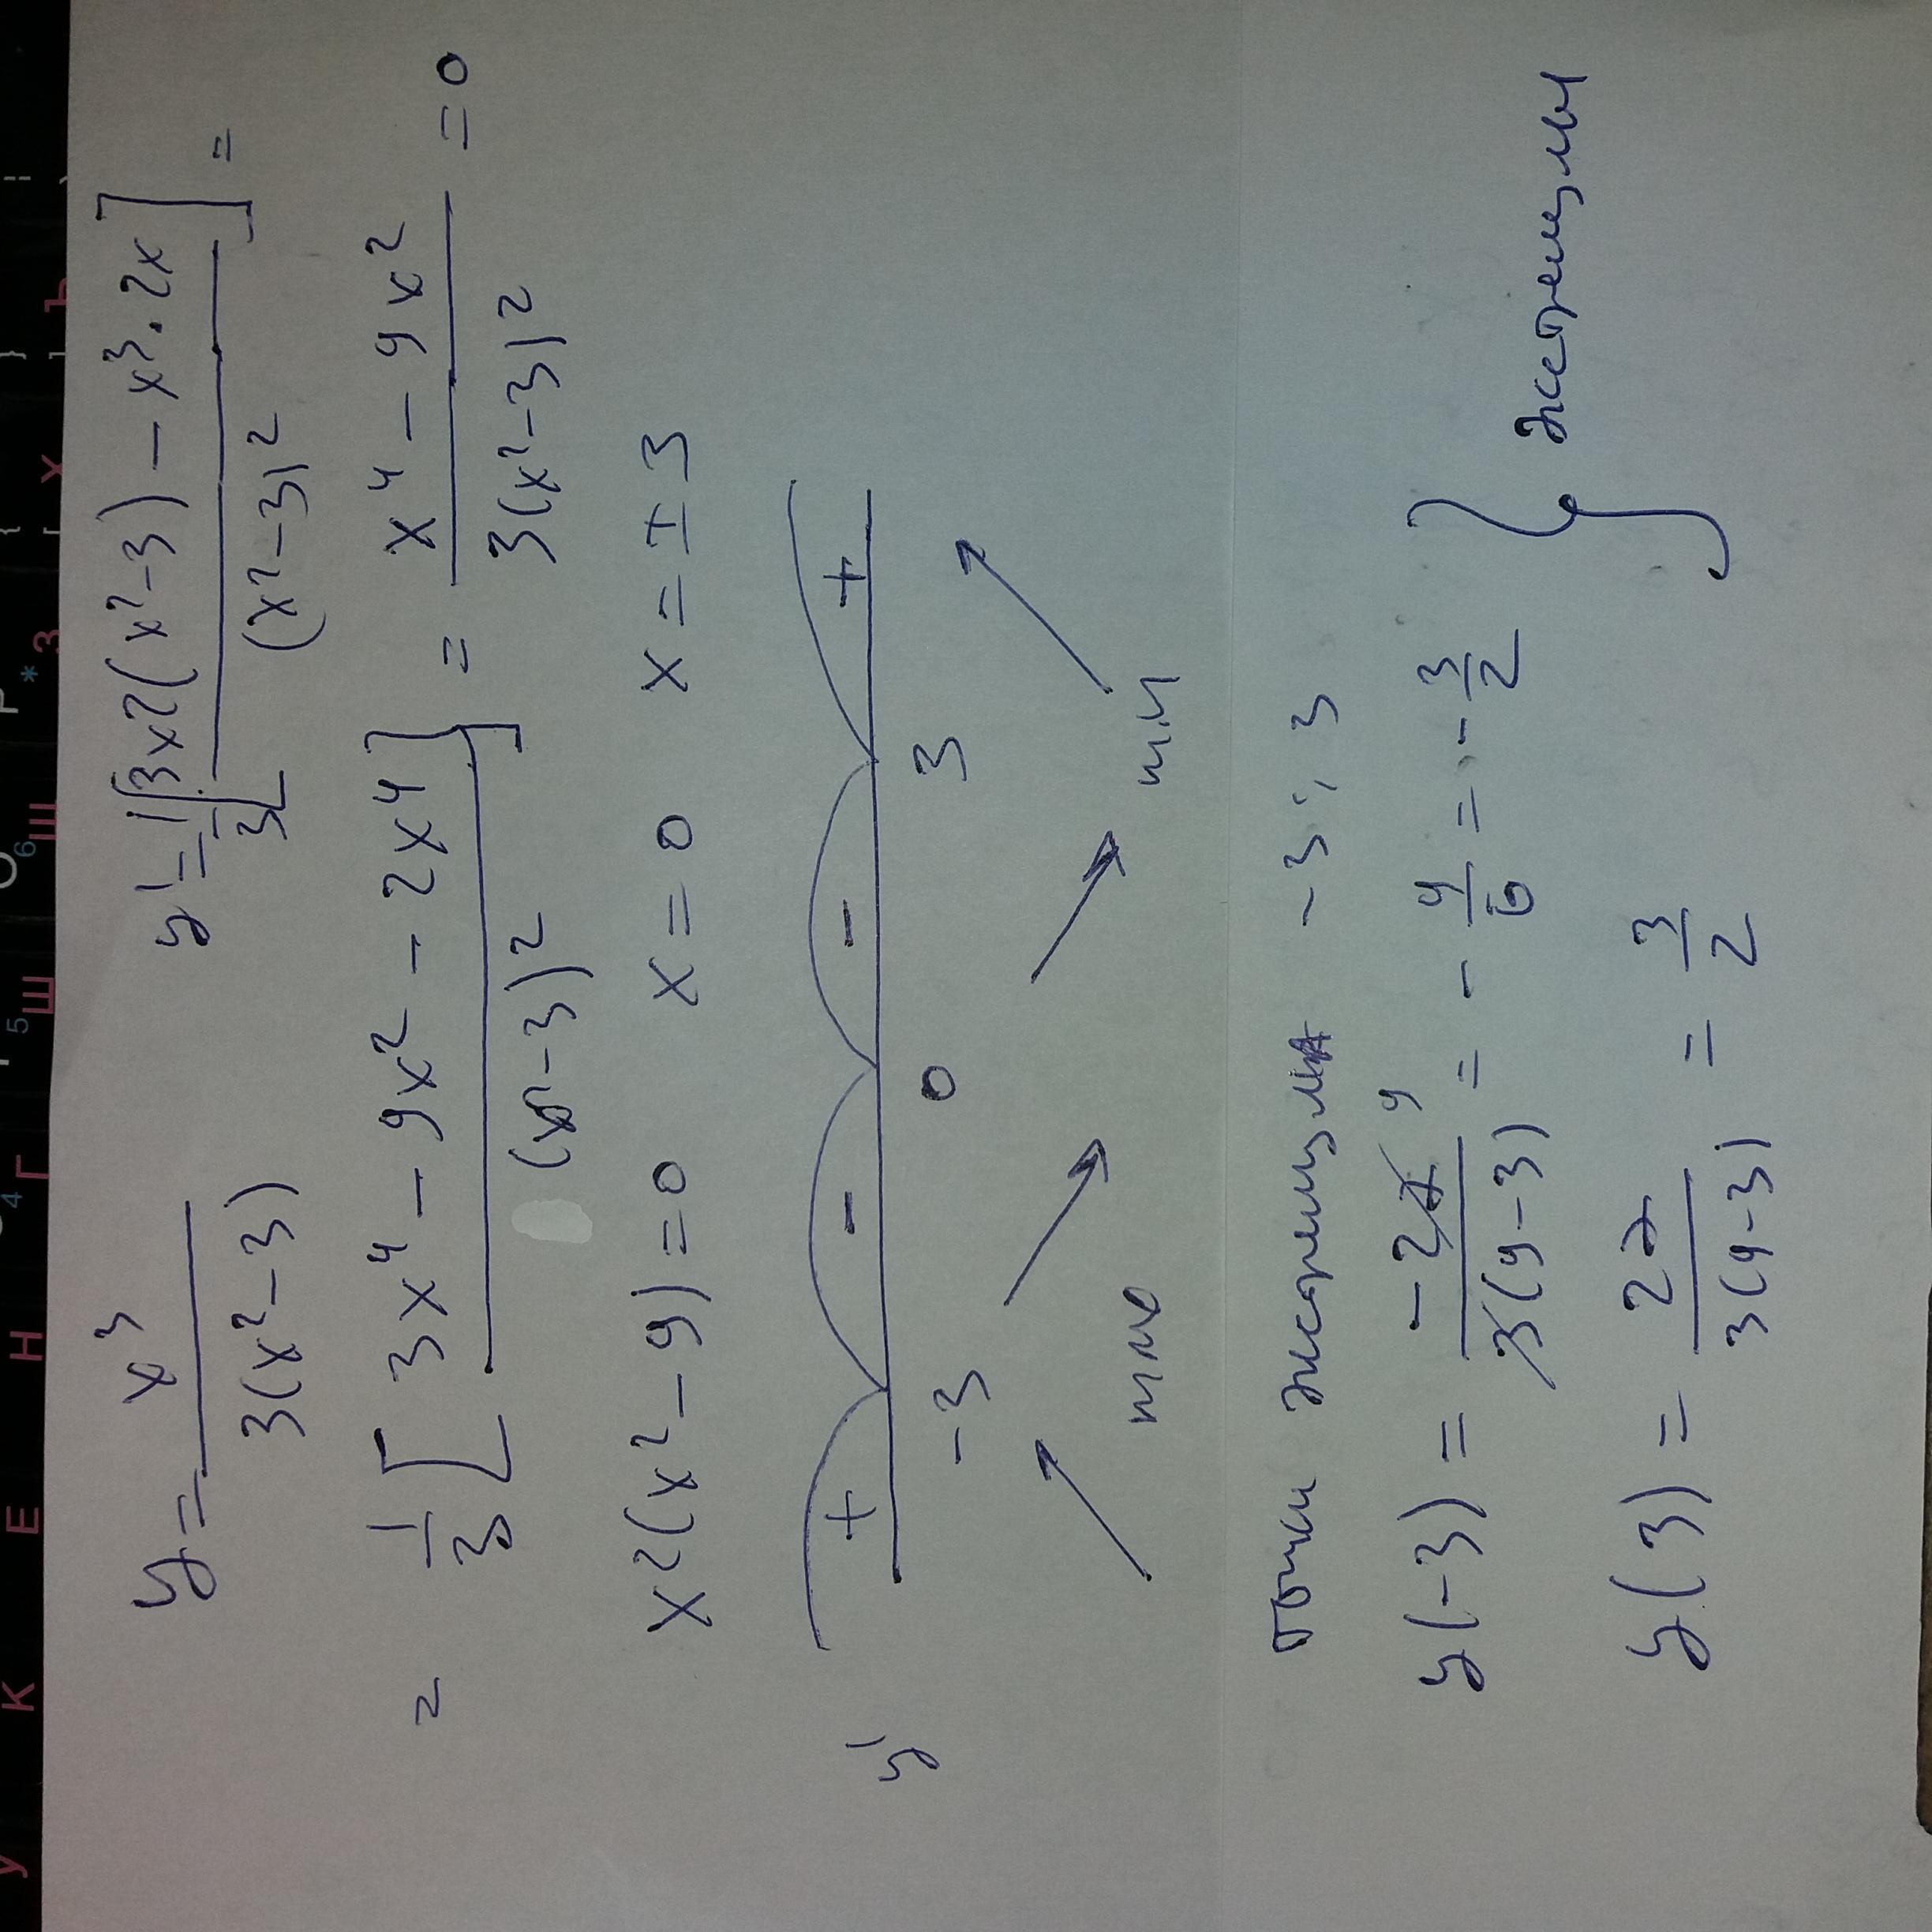 y = x³/(3(x²-3)) y' = 1/3 [(3x²(x²-3) - x³·2x)/(x²-3)²] =
= 1/3 [(3x⁴ - 9x² - 2x⁴)/(x²-3)²] = (x⁴ - 9x²)/(3(x²-3)²) = 0
x²(x²-9)=0 x=0 x=±3
+ - - +
y' -3 0 3
точки экстремума -3; 3
y(-3) = -27/(3(9-3)) = -9/6 = -3/2
y(3) = 27/(3(9-3)) = 3/2
экстремумы
У К Е Н Г Ш Щ З Х Ъ
4 5 6 *